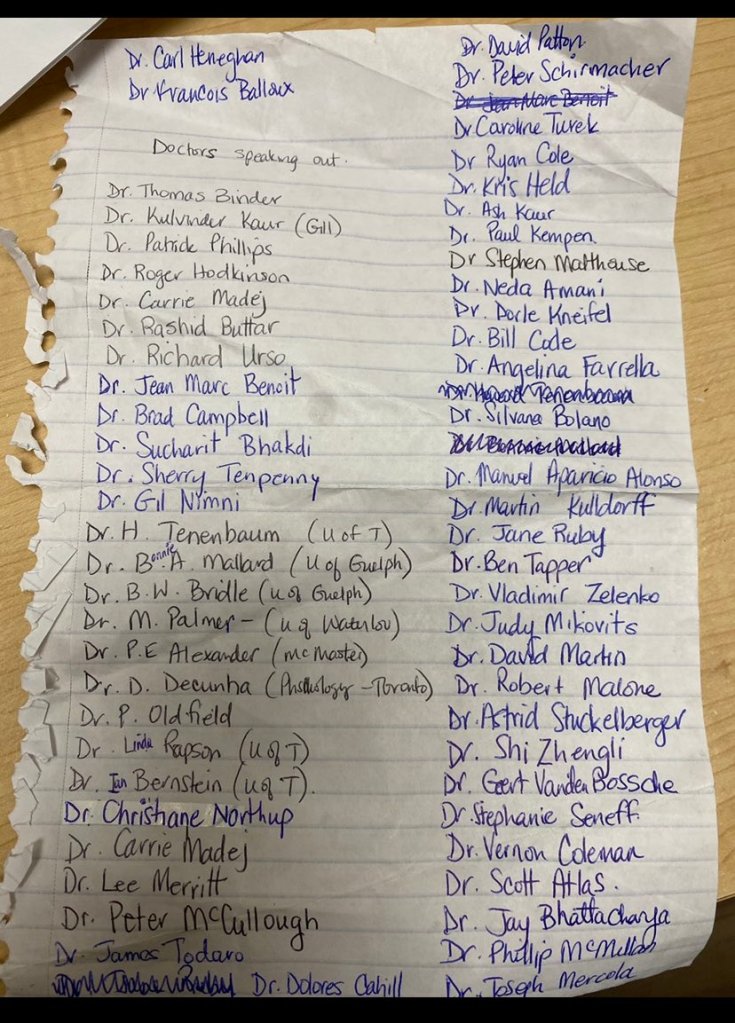 Dr. Carl Heneghan
Dr Francois Balloux
Doctors speaking out.
Dr. Thomas Binder
Dr. Kulvinder Kaur (Gill)
Dr. Patrick Phillips
Dr. Roger Hodkinson
Dr. Carrie Madej
Dr. Rashid Buttar
Dr. Richard Urso
Dr. Jean Marc Benoit
Dr. Brad Campbell
Dr. Sucharit Bhakdi
Dr. Sherry Tenpenny
Dr. Gil Nimni
Dr. H. Tenenbaum (U of T)
Dr. Bonnie A. Mallard (U of Guelph)
Dr. B.W. Bridle (U of Guelph)
Dr. M. Palmer - (U of Waterloo)
Dr. P.E Alexander (McMaster)
Dr. D. Decunha (Phathology - Toronto)
Dr. P. Oldfield
Dr. Linda Rapson (U of T)
Dr. Ian Bernstein (U of T).
Dr. Christiane Northup
Dr. Carrie Madej
Dr. Lee Merritt
Dr. Peter McCullough
Dr. James Todaro
Dr. Dolores Cahill
Dr. David Patton
Dr. Peter Schirmacher
Dr. Jean Marc Benoit
Dr Caroline Turek
Dr Ryan Cole
Dr. Kris Held
Dr. Ash Kaur
Dr. Paul Kempen
Dr Stephen Malthouse
Dr. Neda Amani
Dr. Dorle Kneifel
Dr. Bill Code
Dr. Angelina Farrella
Dr. Howard Tenenbaum
Dr. Silvana Bolano
Dr. Bonnie Mallard
Dr. Manuel Aparicio Alonso
Dr. Martin Kulldorff
Dr. Jane Ruby
Dr. Ben Tapper
Dr. Vladimir Zelenko
Dr. Judy Mikovits
Dr. David Martin
Dr. Robert Malone
Dr. Astrid Stuckelberger
Dr. Shi Zhengli
Dr. Geert Vanden Bossche
Dr. Stephanie Seneff
Dr. Vernon Coleman
Dr. Scott Atlas.
Dr. Jay Bhattacharya
Dr. Phillip McMillan
Dr. Joseph Mercola